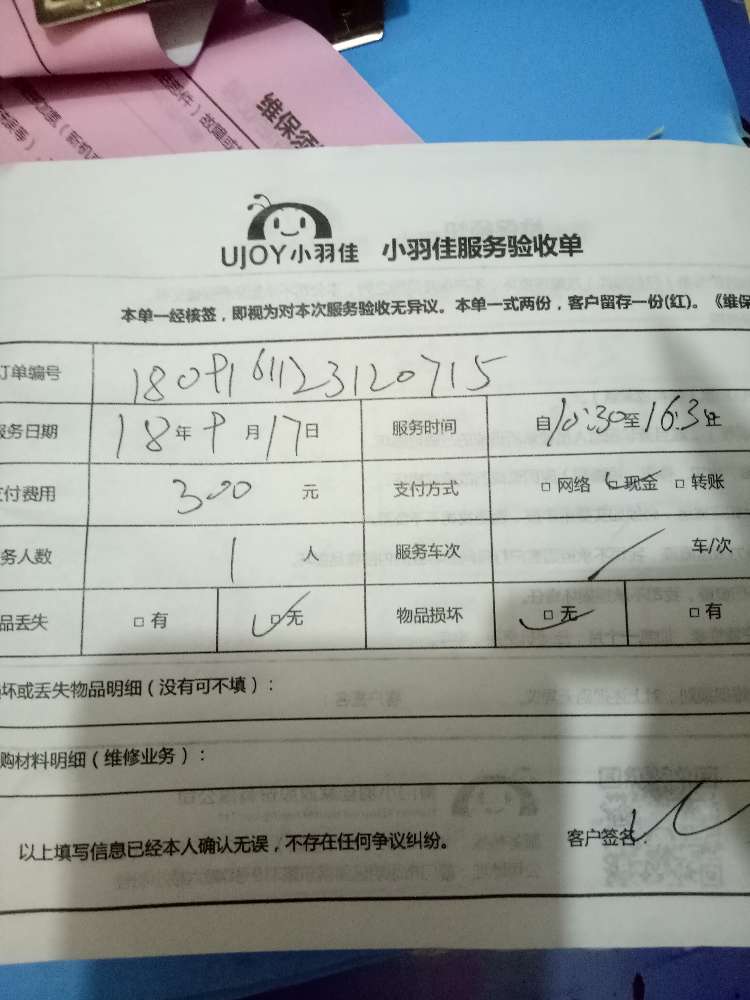 维保须
UJOY小羽佳 小羽佳服务验收单
本单一经核签，即视为对本次服务验收无异议。本单一式两份，客户留存一份(红)。《维保
订单编号 1809161123120715
服务日期 18年9月17日 服务时间 自10:30至16:3止
支付费用 300 元 支付方式 □网络 □现金 □转账
务人数 1 人 服务车次 车/次
品丢失 □有 □无 物品损坏 □无 □有
坏或丢失物品明细（没有可不填）：
购材料明细（维修业务）：
以上填写信息已经本人确认无误，不存在任何争议纠纷。 客户签名：